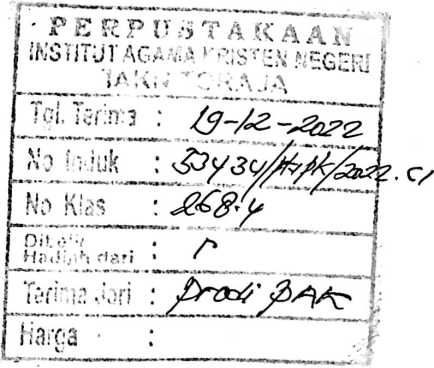 PERPUSTAKAAN
INSTITUT AGAMA KRISTEN NEGERI
IAKN TORAJA
Tgl. Terima : 19-12-2022
No Induk : 53434/ /2022.c1
No Klas : 268.4
Dibeli/
Hadiah dari : r
Terima dari : Prodi PAK
Harga :